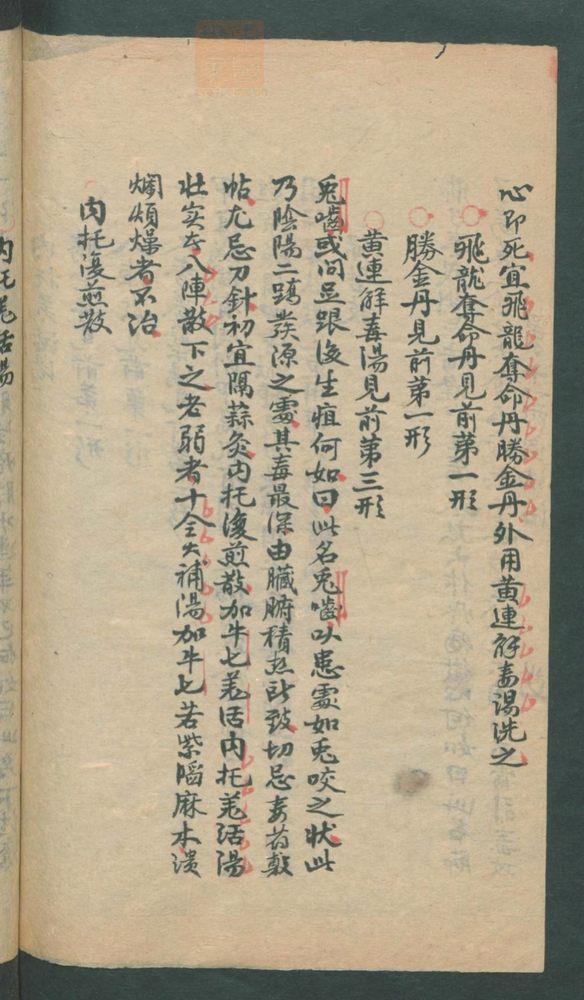 心即死宜飛龍奪命丹勝金丹外用黃連解毒湯洗之
飛龍奪命丹見前第一形
勝金丹見前第一形
黄連解毒陽見前第三形
兎嚙或问足跟後生疽何如曰此名兎嚙以患處如兎咬之狀此
乃陰陽二蹻發源之處其毒最深由臟腑積热所致切忌毒药敷
帖尤忌刀針初宜隔蒜灸内托復煎散加牛七羌活内托羌活湯
壮实者八陣散下之老弱者十全大補湯加牛七若紫腦麻木潰
爛煩燥者不治
内托復煎散
内托羌活湯